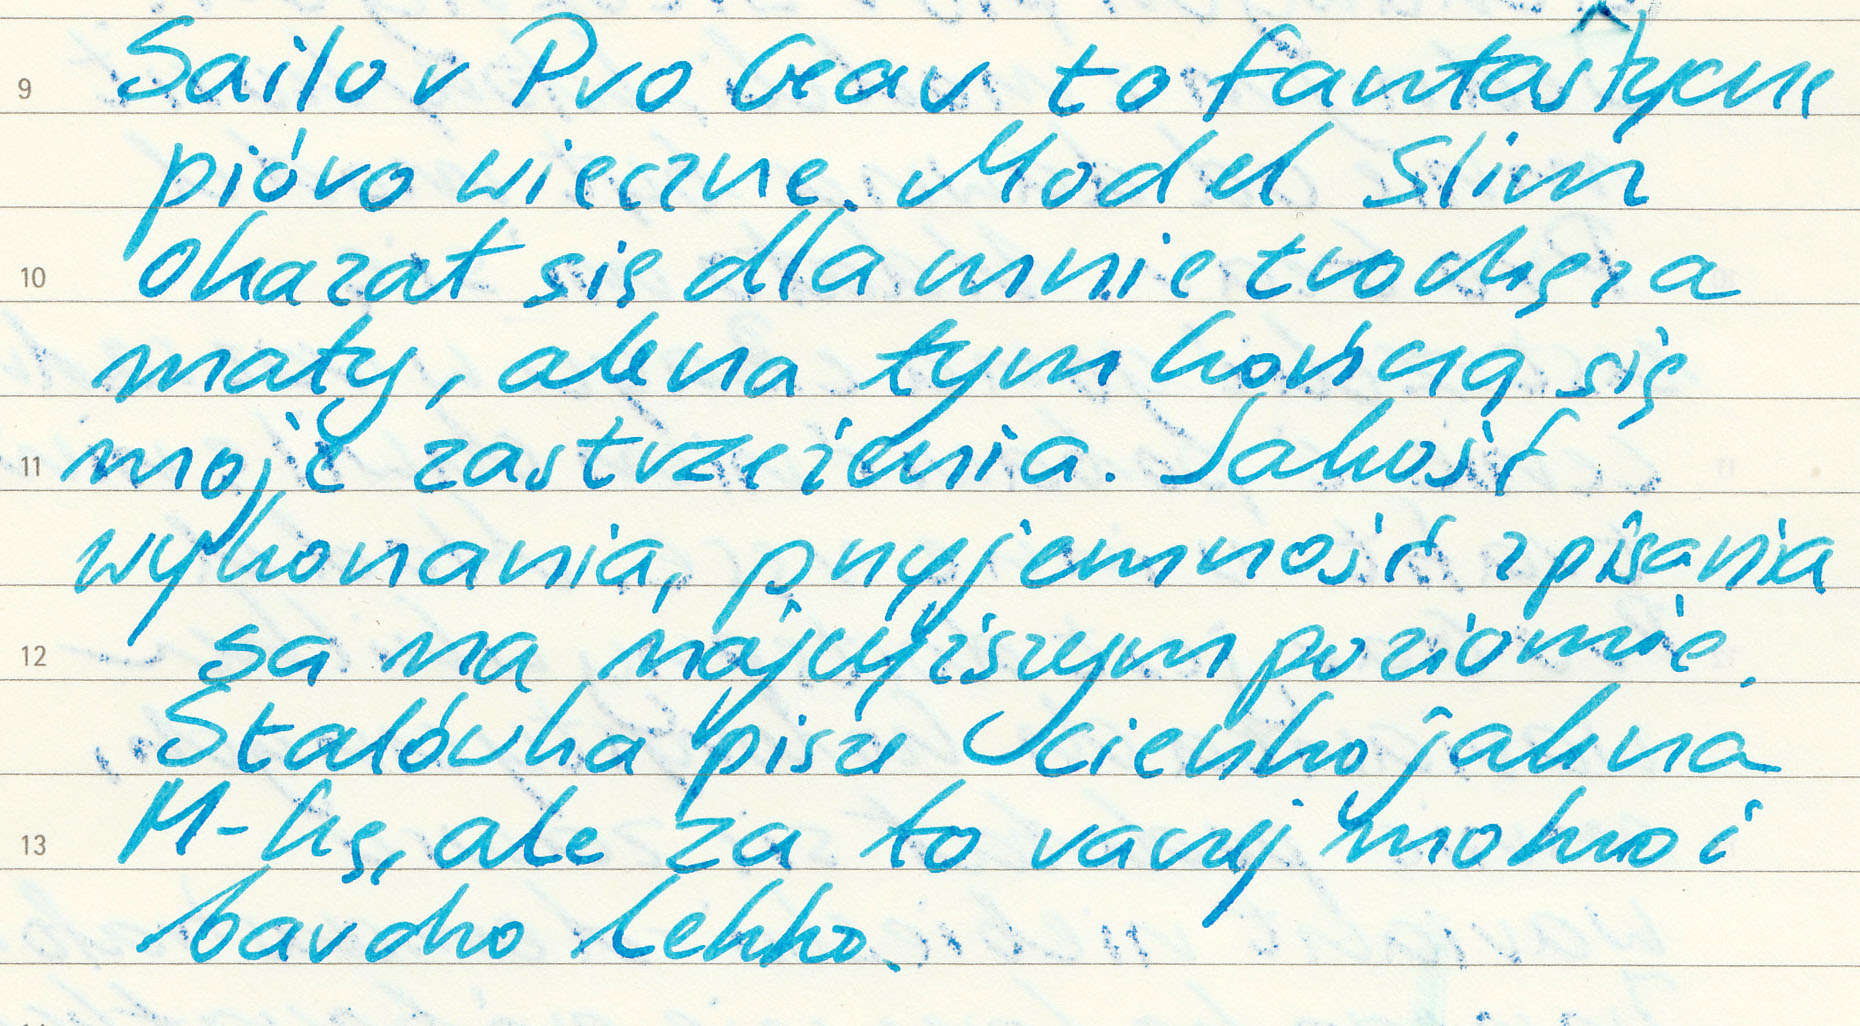 9 Sailor Pro Gear to fantastyczne
pióro wieczne. Model Slim
10 okazał się dla mnie trochę za
mały, ale na tym kończą się
11 moje zastrzeżenia. Jakość
wykonania, przyjemność z pisania
12 są na najwyższym poziomie.
Stalówka pisze cienko jak na
13 M-kę, ale za to raczej mokro i
bardzo lekko.